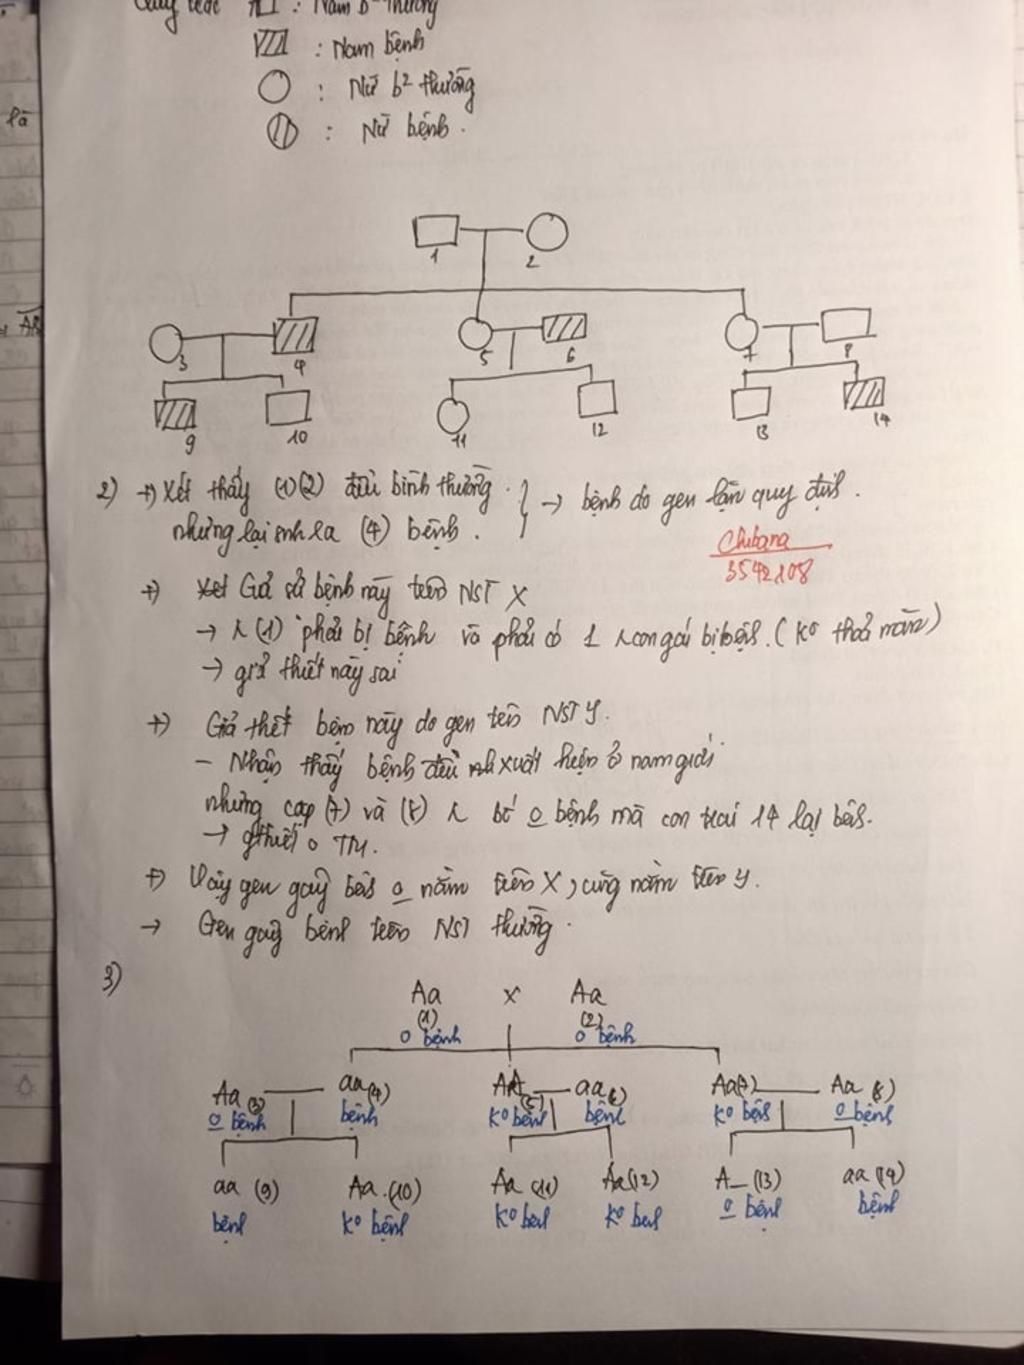 : Nam b² thường
: Nam bệnh
: Nữ b² thường
: Nữ bệnh.
là
1
2
3
4
5
6
7
8
9
10
11
12
13
14
2) +) Xét thấy (1)(2) đều bình thường.
nhưng lại sinh ra (4) bệnh.
→ bệnh do gen lặn quy định.
Chibana
3542108
+) Giả sử bệnh này trên NST X
→ (1) phải bị bệnh và phải có 1 con gái bị bệnh. (Ko thoả mãn)
→ giả thiết này sai
+) Giả thiết bệnh này do gen trên NST Y.
- Nhận thấy bệnh đều xuất hiện ở nam giới
nhưng cặp (7) và (8) bố o bệnh mà con trai 14 lại bệnh.
→ gthiết o TM.
+) Vậy gen gây bệnh o nằm trên X, cũng nằm trên Y.
→ Gen gây bệnh trên NST thường.
3)
Aa x Aa
(1) (2)
o bệnh o bệnh
Aa (3) aa (4) AA (5) aa (6) Aa (7) Aa (8)
o bệnh bệnh Ko bệnh bệnh Ko bệnh o bệnh
aa (9) Aa (10) Aa (11) Aa (12) A_ (13) aa (14)
bệnh Ko bệnh Ko bệnh Ko bệnh o bệnh bệnh